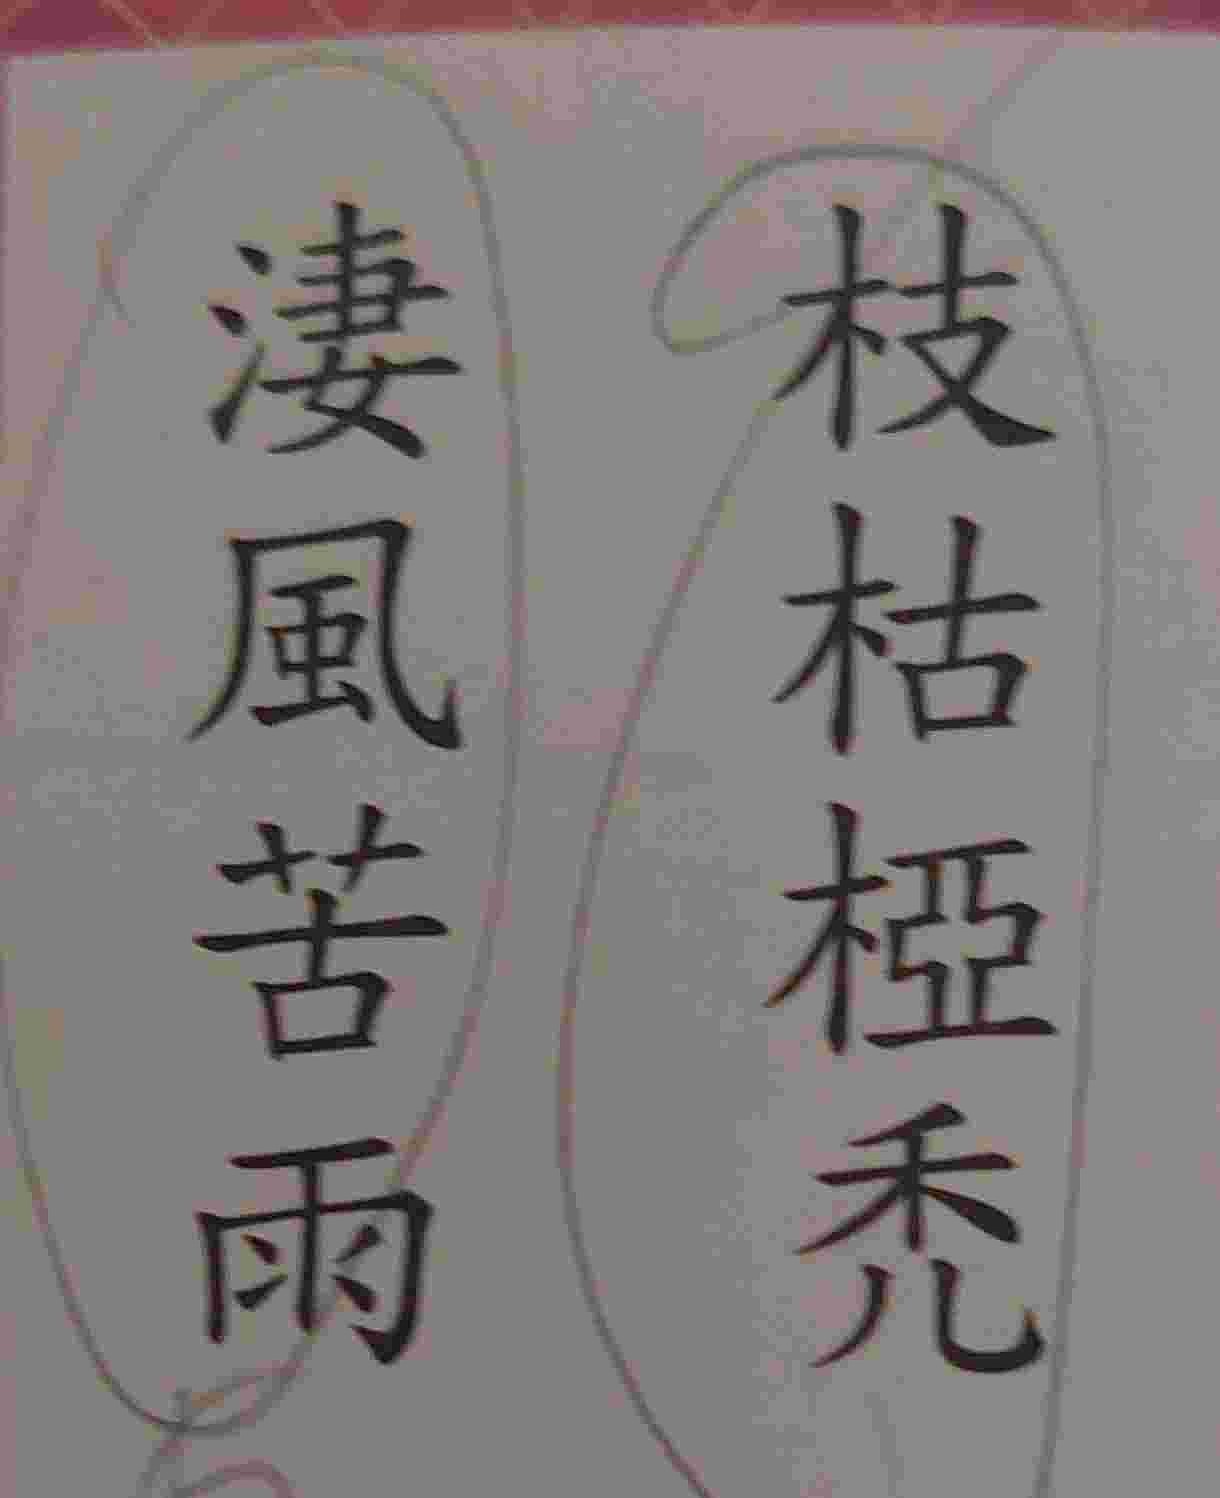 枝枯椏禿
淒風苦雨